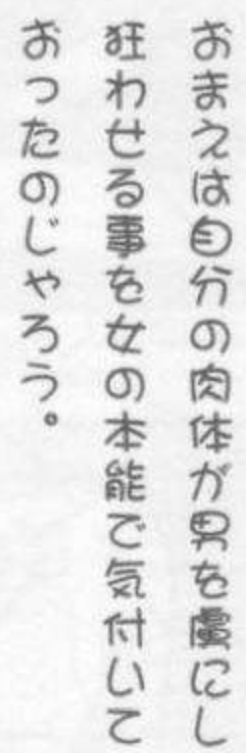 おまえは自分の肉体が男を虜にし
狂わせる事を女の本能で気付いて
おったのじゃろう。